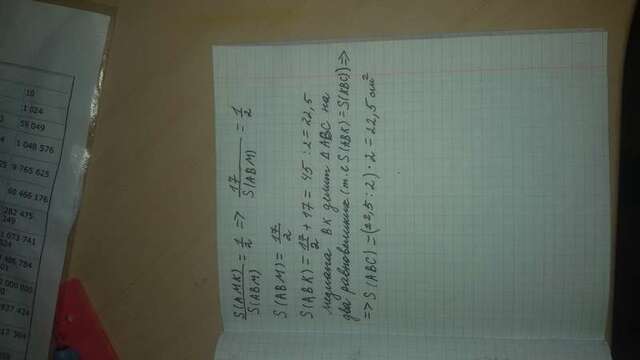 S(AMK)/S(ABM) = 1/2 => 17/S(ABM) = 1/2
S(ABM) = 17/2
S(ABK) = 17/2 + 17 = 45 : 2 = 22,5
медиана BK делит Δ ABC на
два равновеликие (т.е S(ABK) = S(KBC)) =>
=> S(ABC) = (22,5 : 2) · 2 = 22,5 см²
10
1 024
59 049
1 048 576
9 765 625
60 466 176
282 475
249
1 073 741